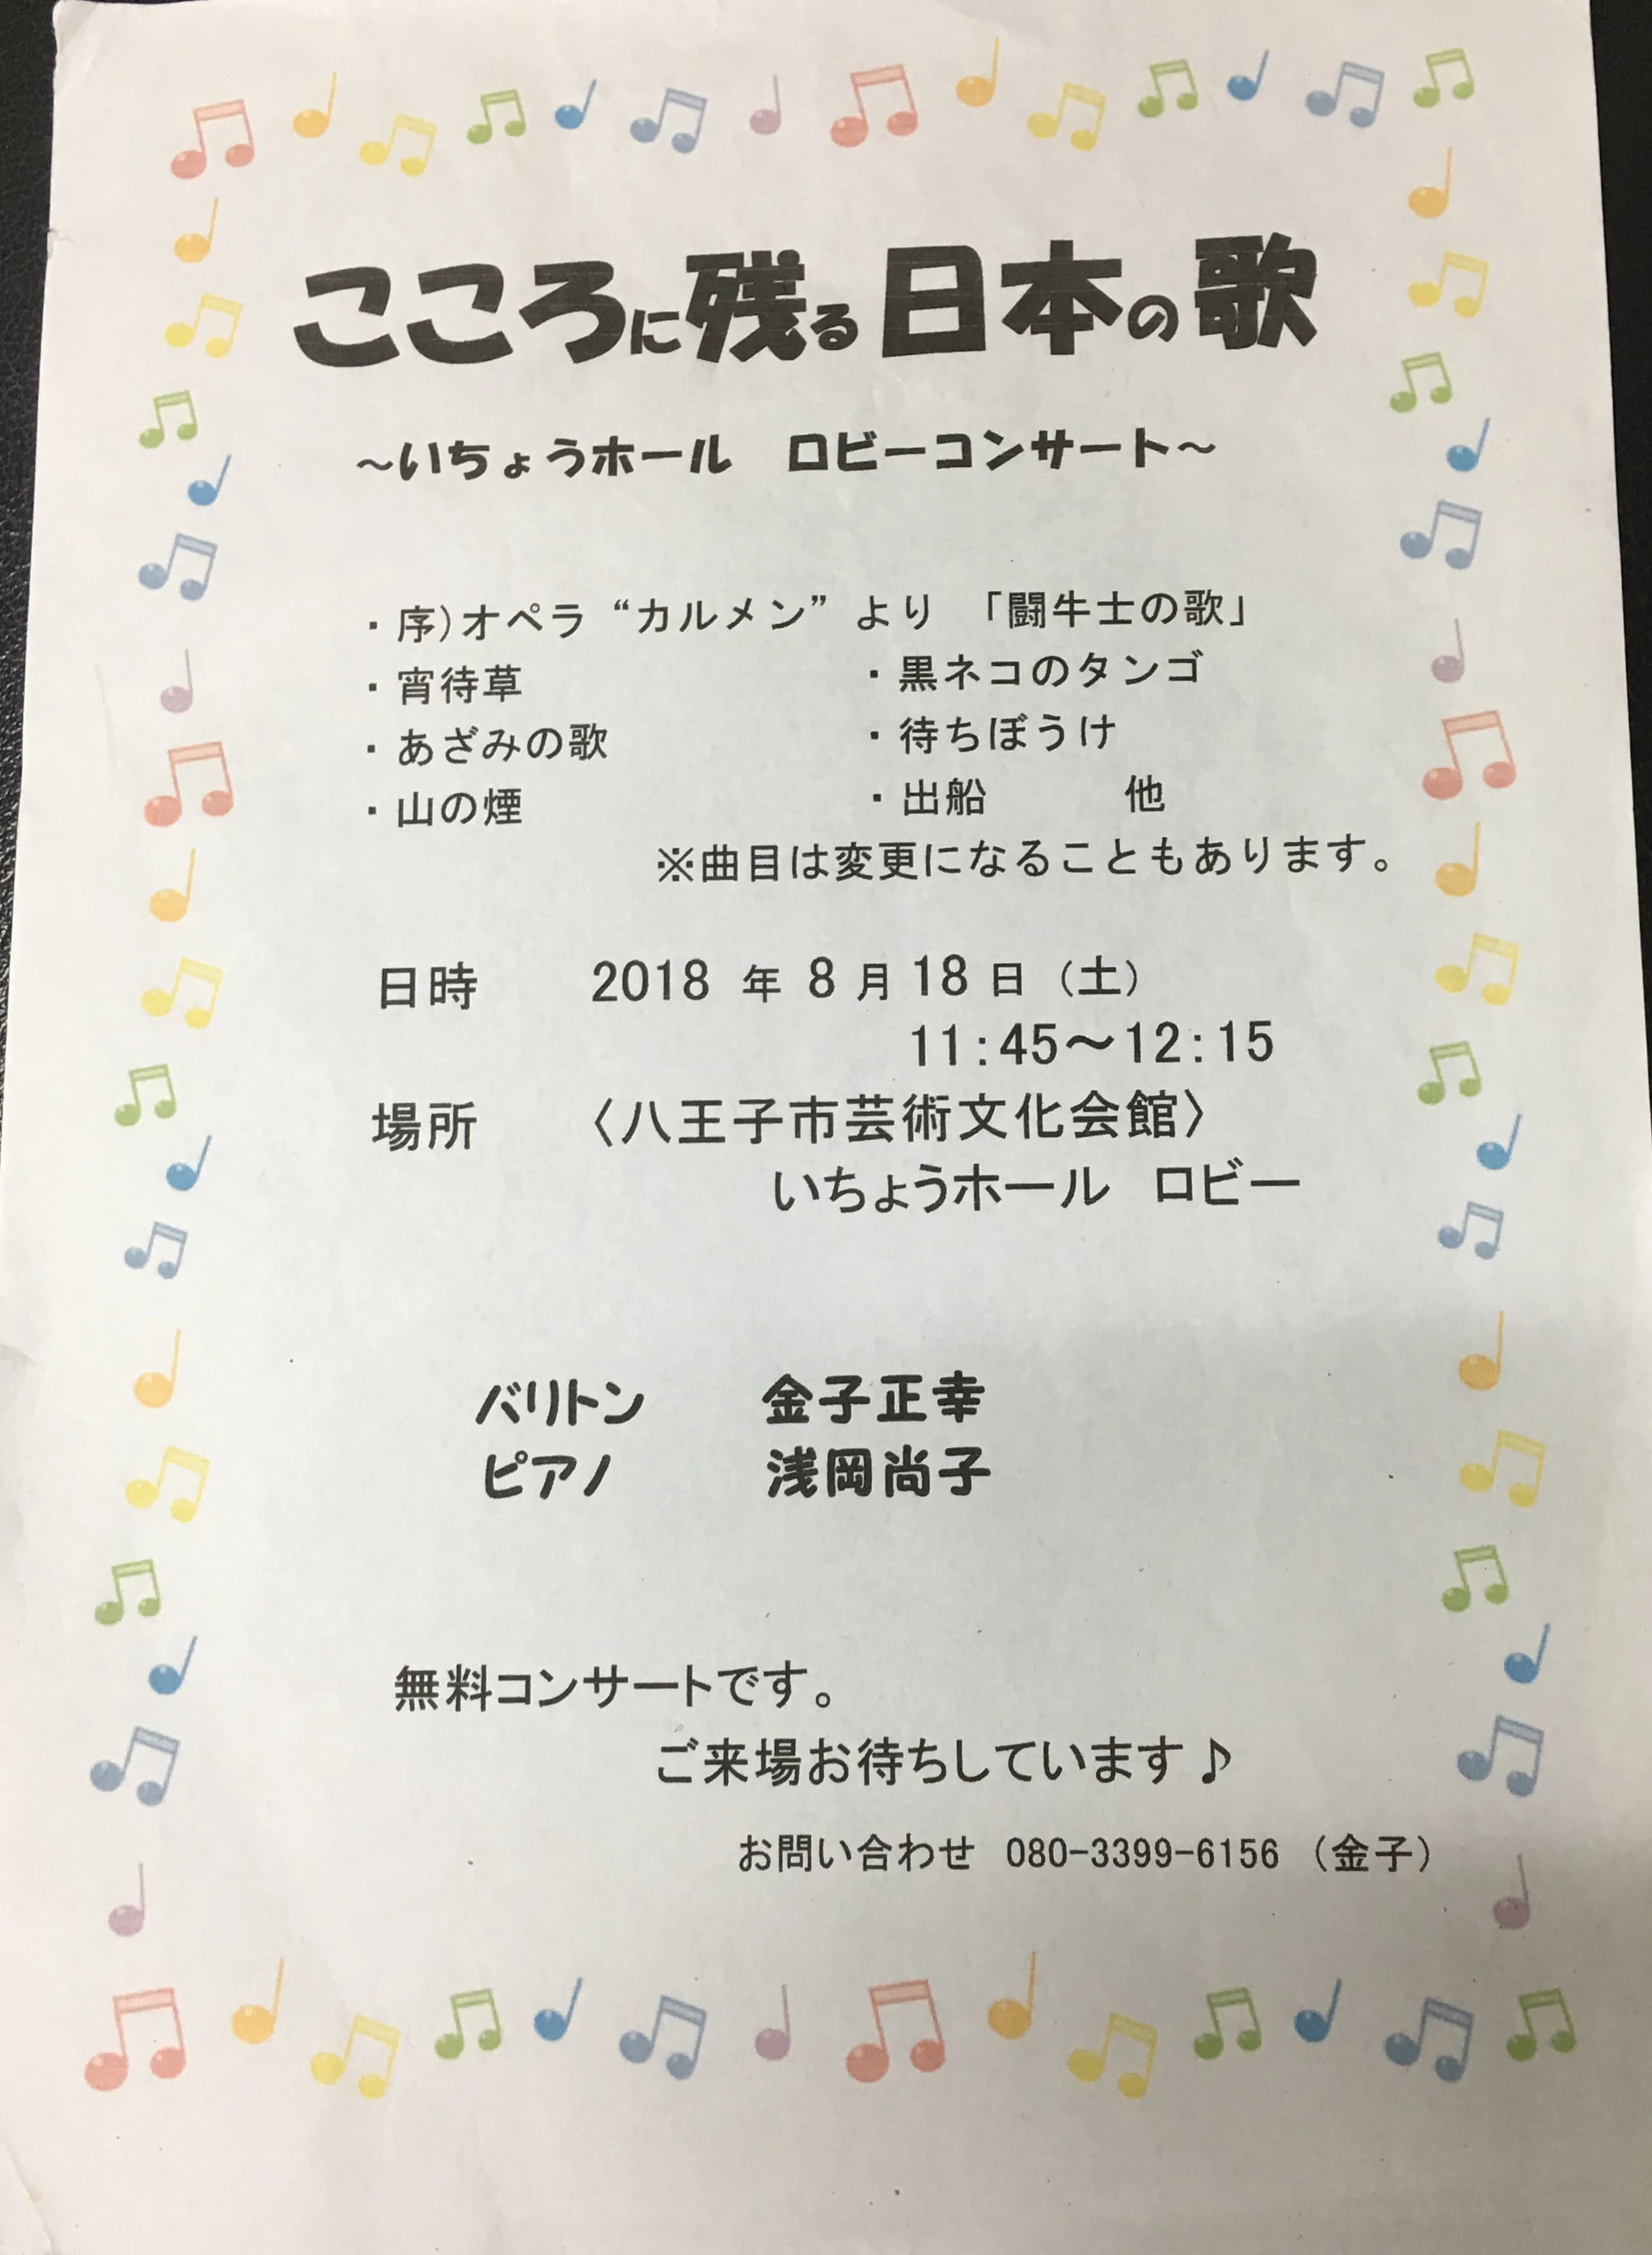 こころに残る日本の歌
～いちょうホール　ロビーコンサート～
・序)オペラ“カルメン”より　「闘牛士の歌」
・宵待草　・黒ネコのタンゴ
・あざみの歌　・待ちぼうけ
・山の煙　・出船　他
※曲目は変更になることもあります。
日時　2018 年 8 月 18 日（土）
11：45～12：15
場所　〈八王子市芸術文化会館〉
いちょうホール　ロビー
バリトン　金子正幸
ピアノ　浅岡尚子
無料コンサートです。
ご来場お待ちしています♪
お問い合わせ　080-3399-6156（金子）